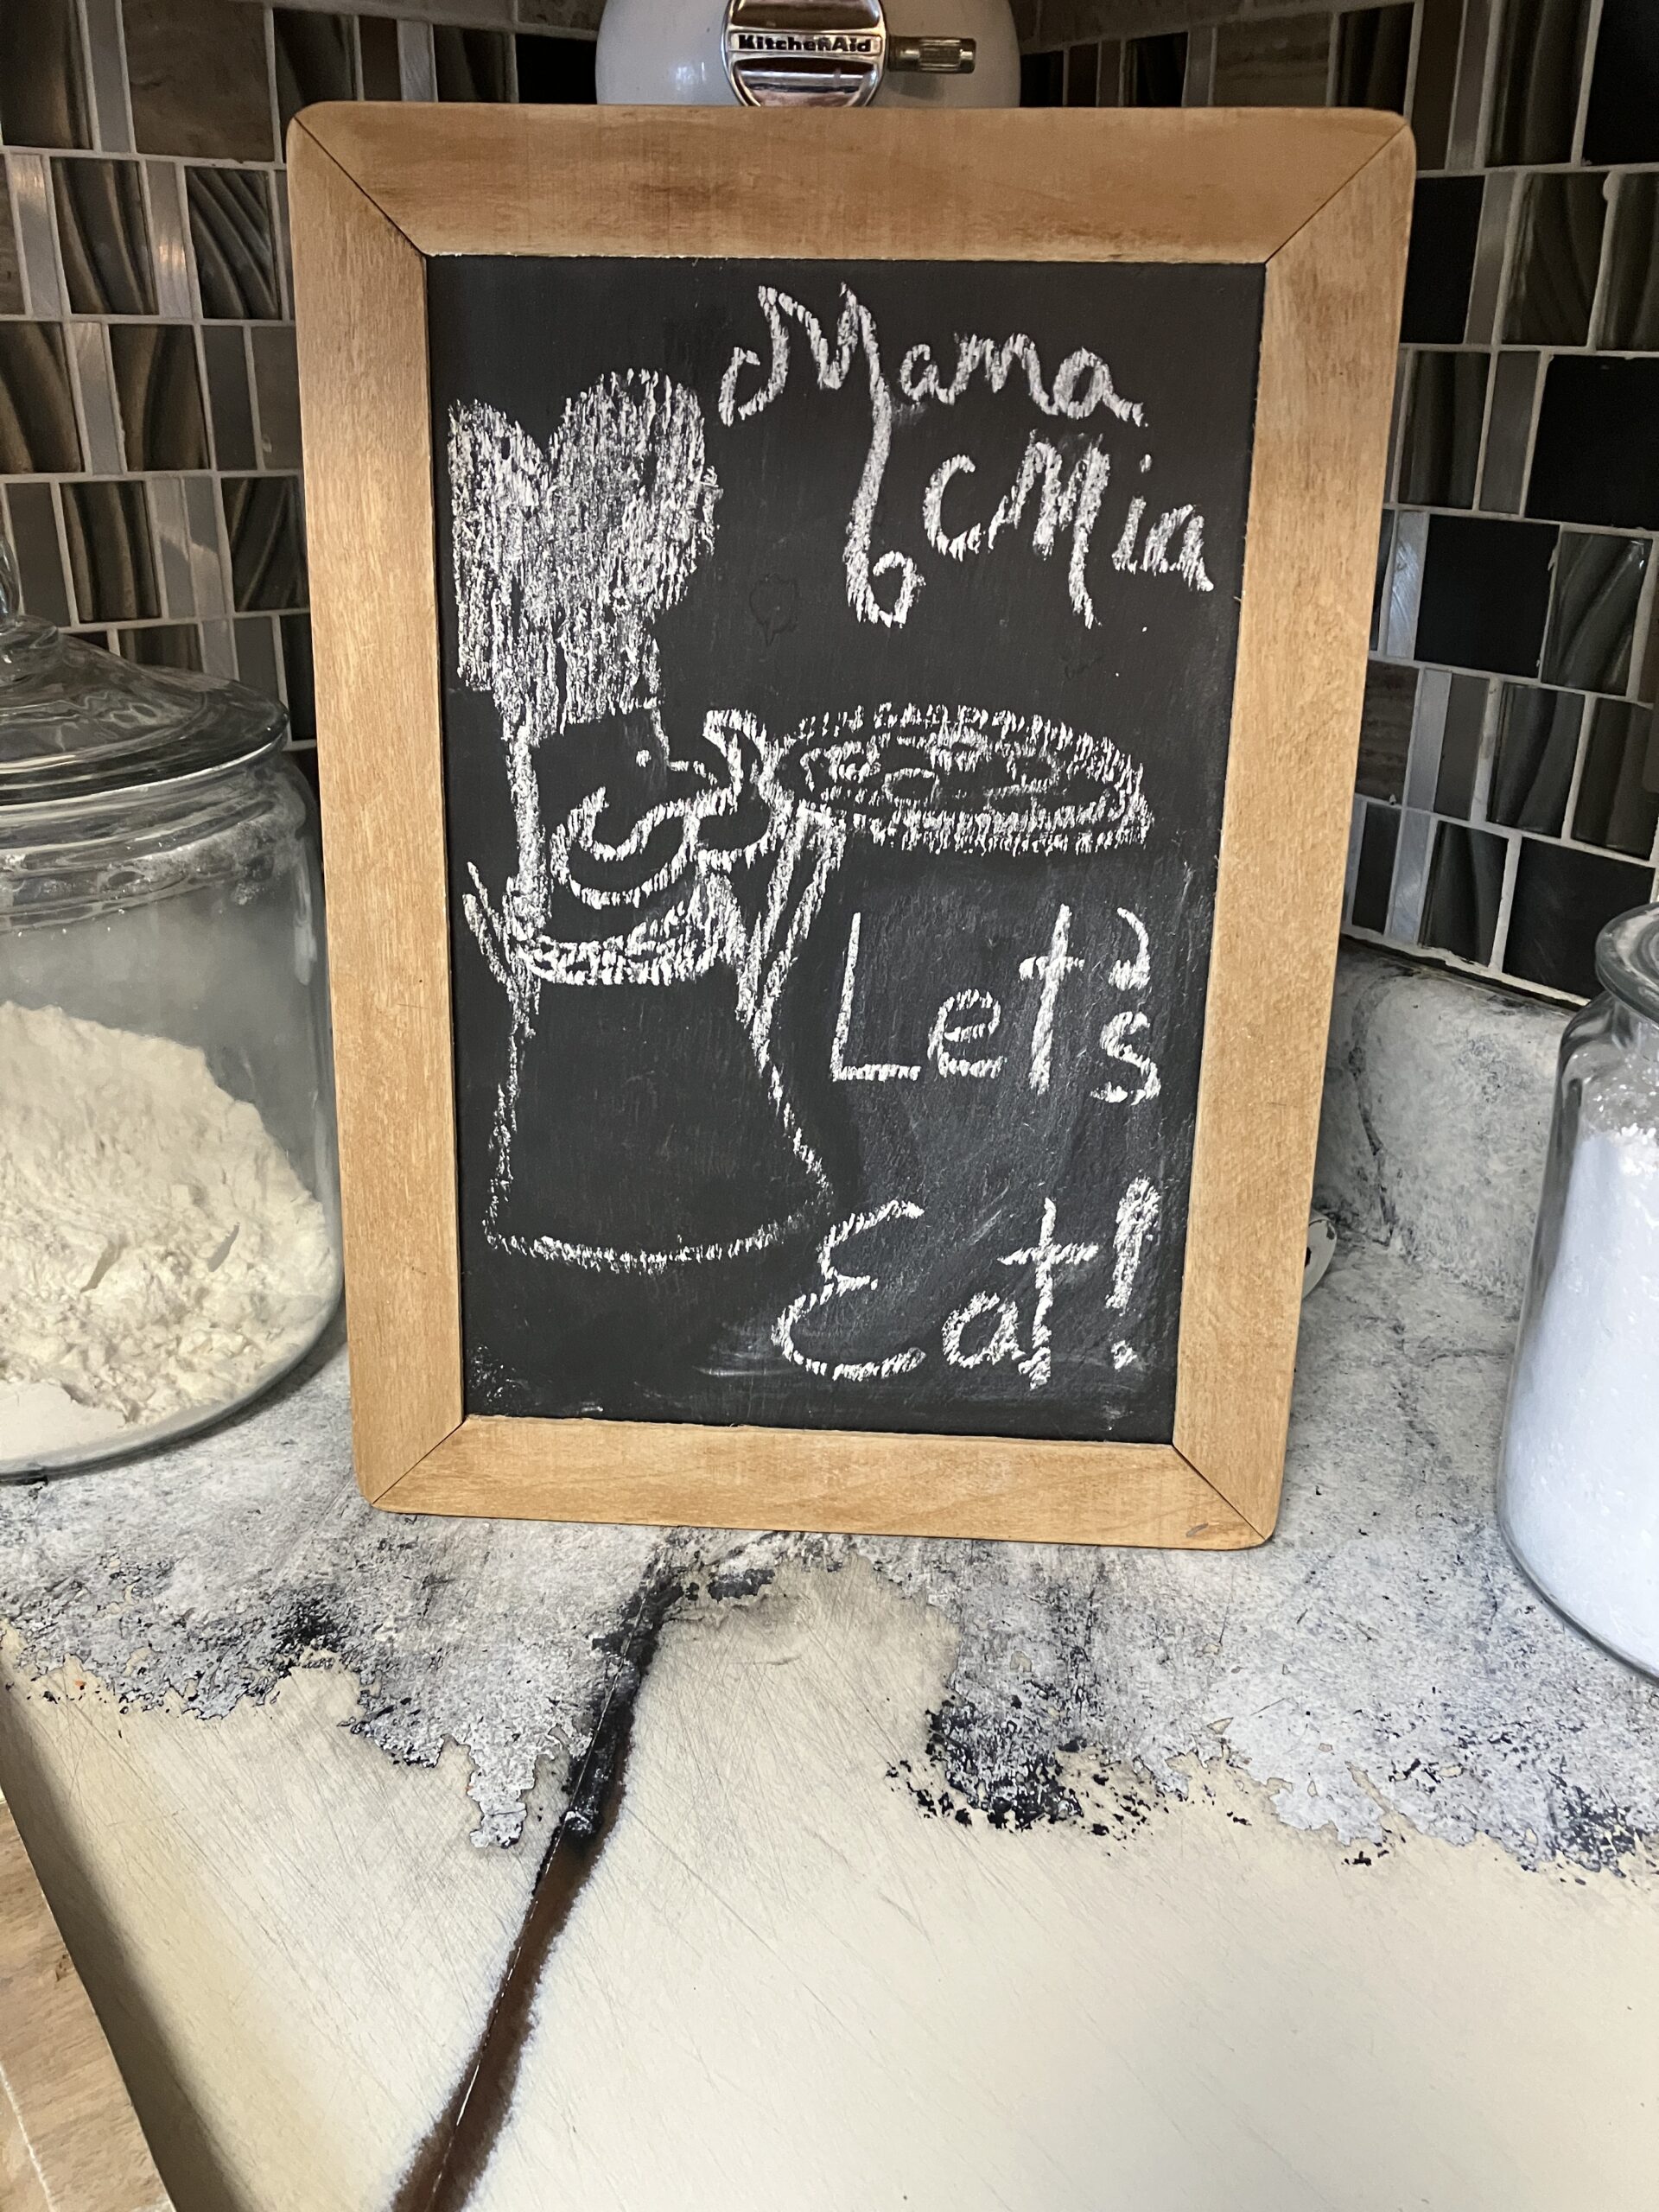 KitchenAid
Mama
Mia
Let's
Eat!